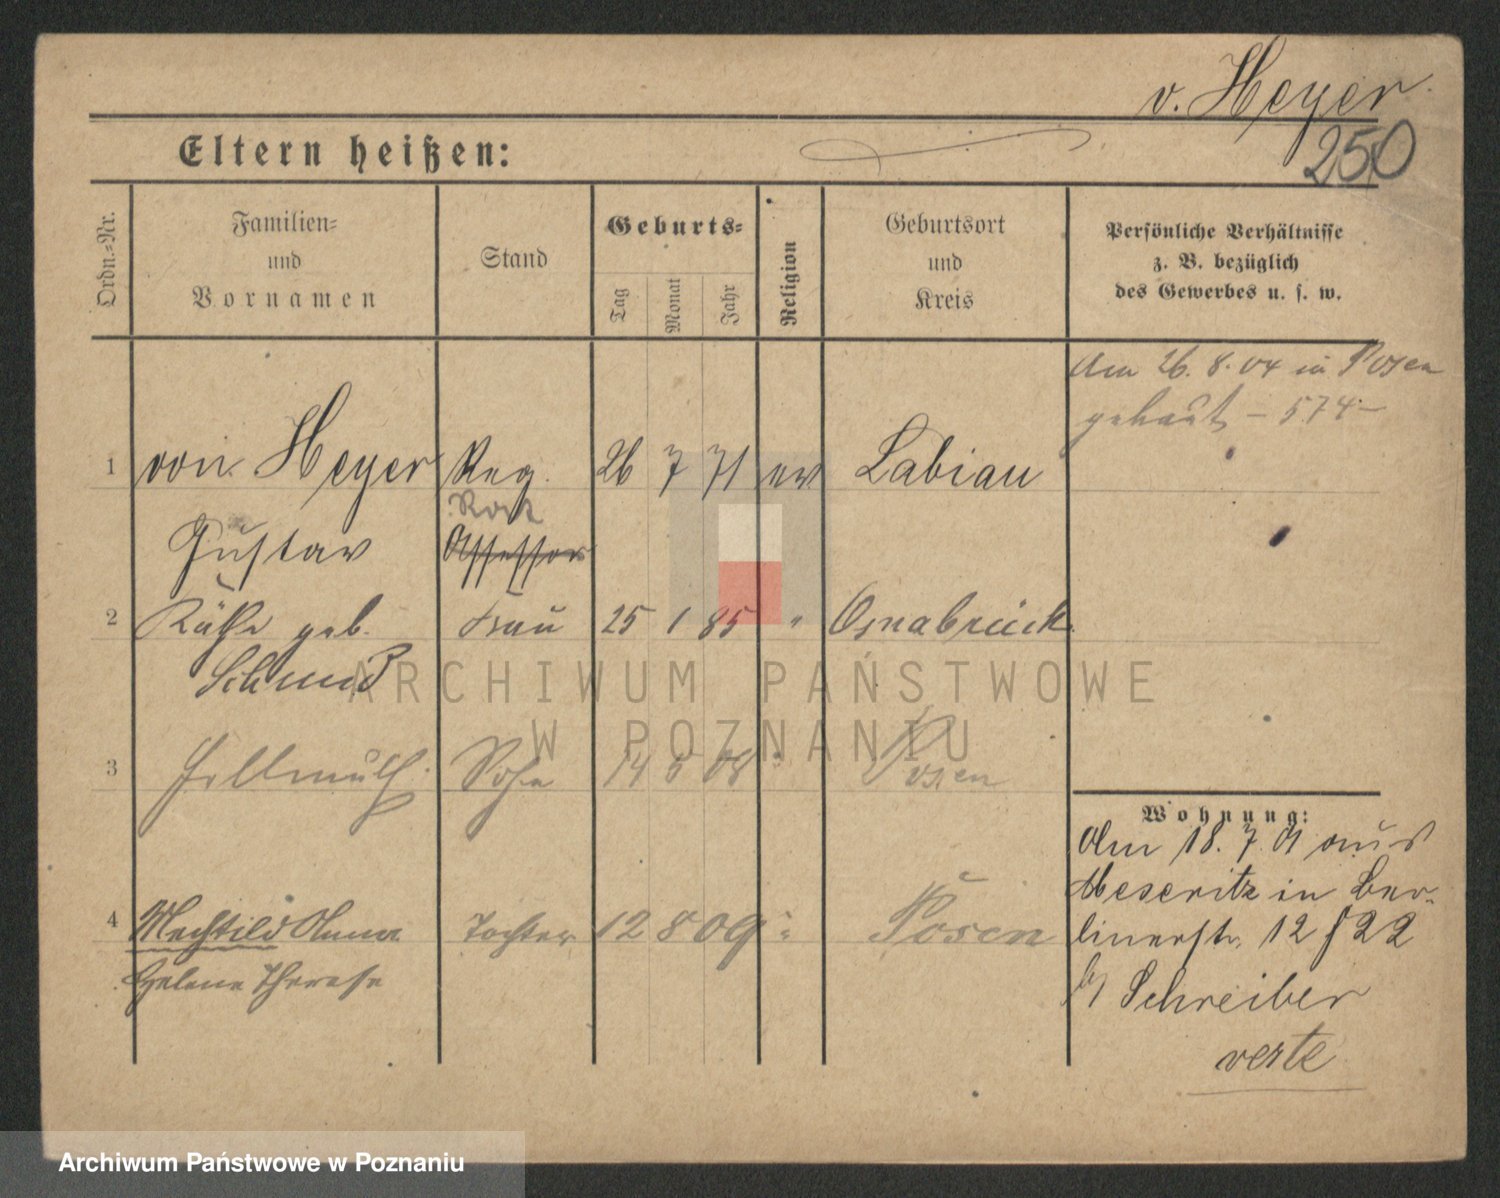 v. Heyer
250
Eltern heißen:
Ordn.-Nr.
Familien-
und
Vornamen
Stand
Geburts-
Tag
Monat
Jahr
Religion
Geburtsort
und
Kreis
Persönliche Verhältnisse
z. B. bezüglich
des Gewerbes u. s. w.
Am 26. 8. 04 in Posen
getraut – 574 –
1 von Heyer Reg. 26 7 71 ev Labiau
Rat
Gustav Assessor
2 Käthe geb. Frau 25 1 85 " Osnabrück
Schmid
3 Hellmuth Sohn 14 08 " Posen
Wohnung:
Am 18. 7. 01 aus
Meseritz in Ber-
4 Mechtild Anna Tochter 12 8 09 " Posen
linerstr. 12
Helene Therese
Schreiber
verte
ARCHIWUM PAŃSTWOWE
W POZNANIU
Archiwum Państwowe w Poznaniu